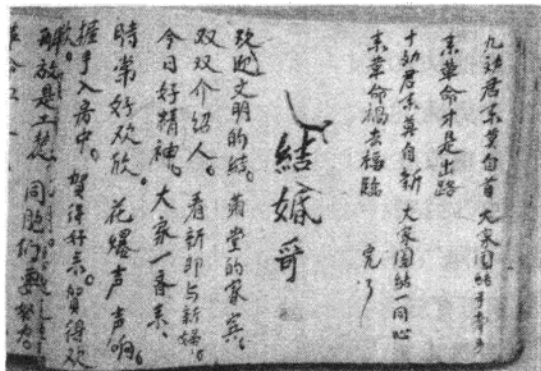 九劝君来莫自首 大家园結
来革命才是出路
十劝君来莫自新 大家园結一同心
来革命祸去福臨 完了
結婚哥
欢迎文明的結。 满堂的家宾。
双双介绍人。 看新郎与新婦。
今日好精神。 大家一香来。
時常好欢欣。 花爆声声响。
握手入房中。 賀得好来。 賀得欢
解放是工 同胞们